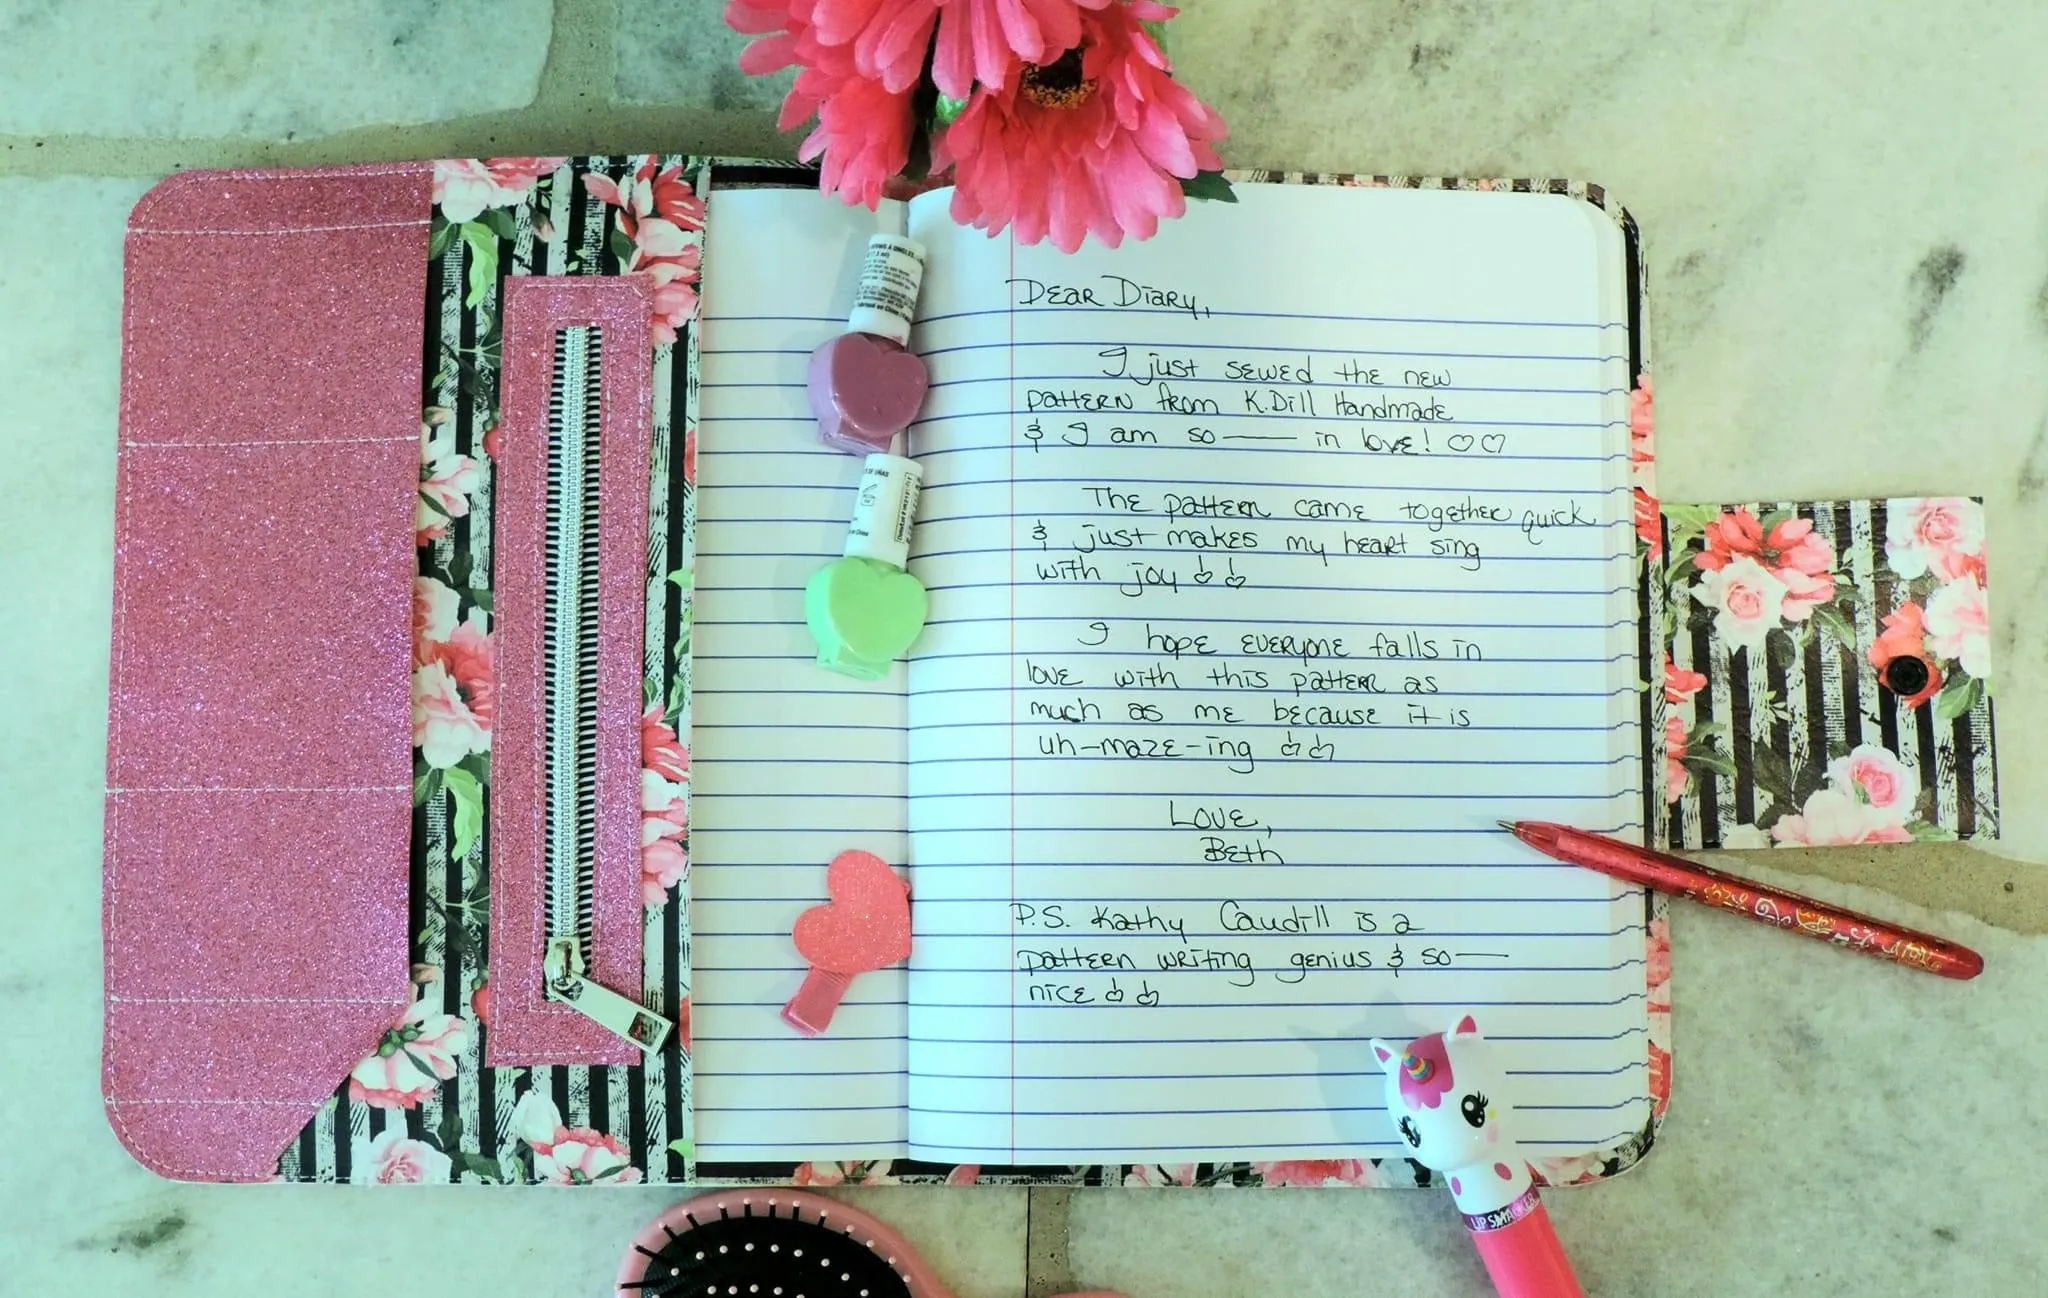 Dear Diary,
I just sewed the new
pattern from K.Dill Handmade
& I am so—— in love! ♡♡
The pattern came together quick
& just makes my heart sing
with joy
I hope everyone falls in
love with this pattern as
much as me because it is
uh-maze-ing
Love,
Beth
P.S. Kathy Caudill is a
pattern writing genius & so—
nice
LIP SMACKER